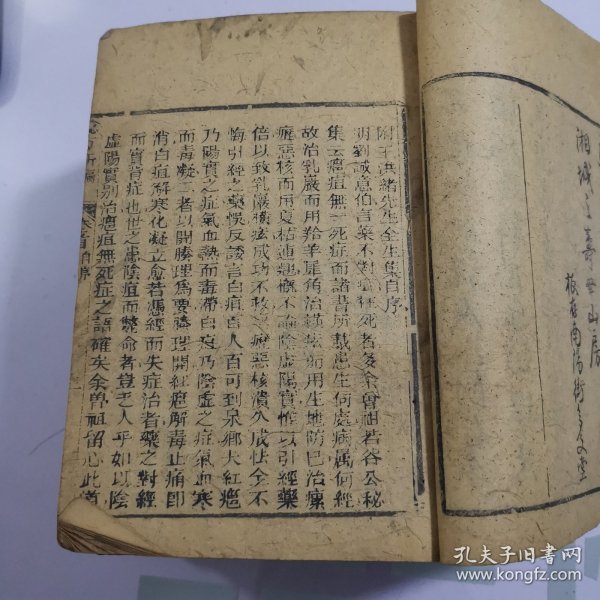 湘城三壽世山房
板存南陽街
附王洪緒先生全生集自序
明劉誠意伯言藥不對症枉死者多余曾祖若谷公秘
集云癰疽無一死症而諸書所載患生何處病屬何經
故治乳巖而用羚羊犀角治橫痃而用生地防己治瘰
癧惡核而用夏枯連翹概不論陰虛陽實惟以引經藥
倍以致乳巖橫痃成功不救瘰癧惡核潰久成怯全不
悔引經之藥悞反諉言白疽百人百可到泉鄉夫紅癰
乃陽實之症氣血熱而毒滯白疽乃陰虛之症氣血寒
而毒凝二者以開腠理爲要腠理開紅癰解毒止痛即
消白疽解寒化凝立愈若憑經而失症治者藥之對經
而實背症也世之患陰疽而斃命者豈乏人乎如以陰
虛陽實別治癰疽無死症之語確矣余曾祖留心此道
卷首自序
孔夫子旧书网
www.kongfz.com